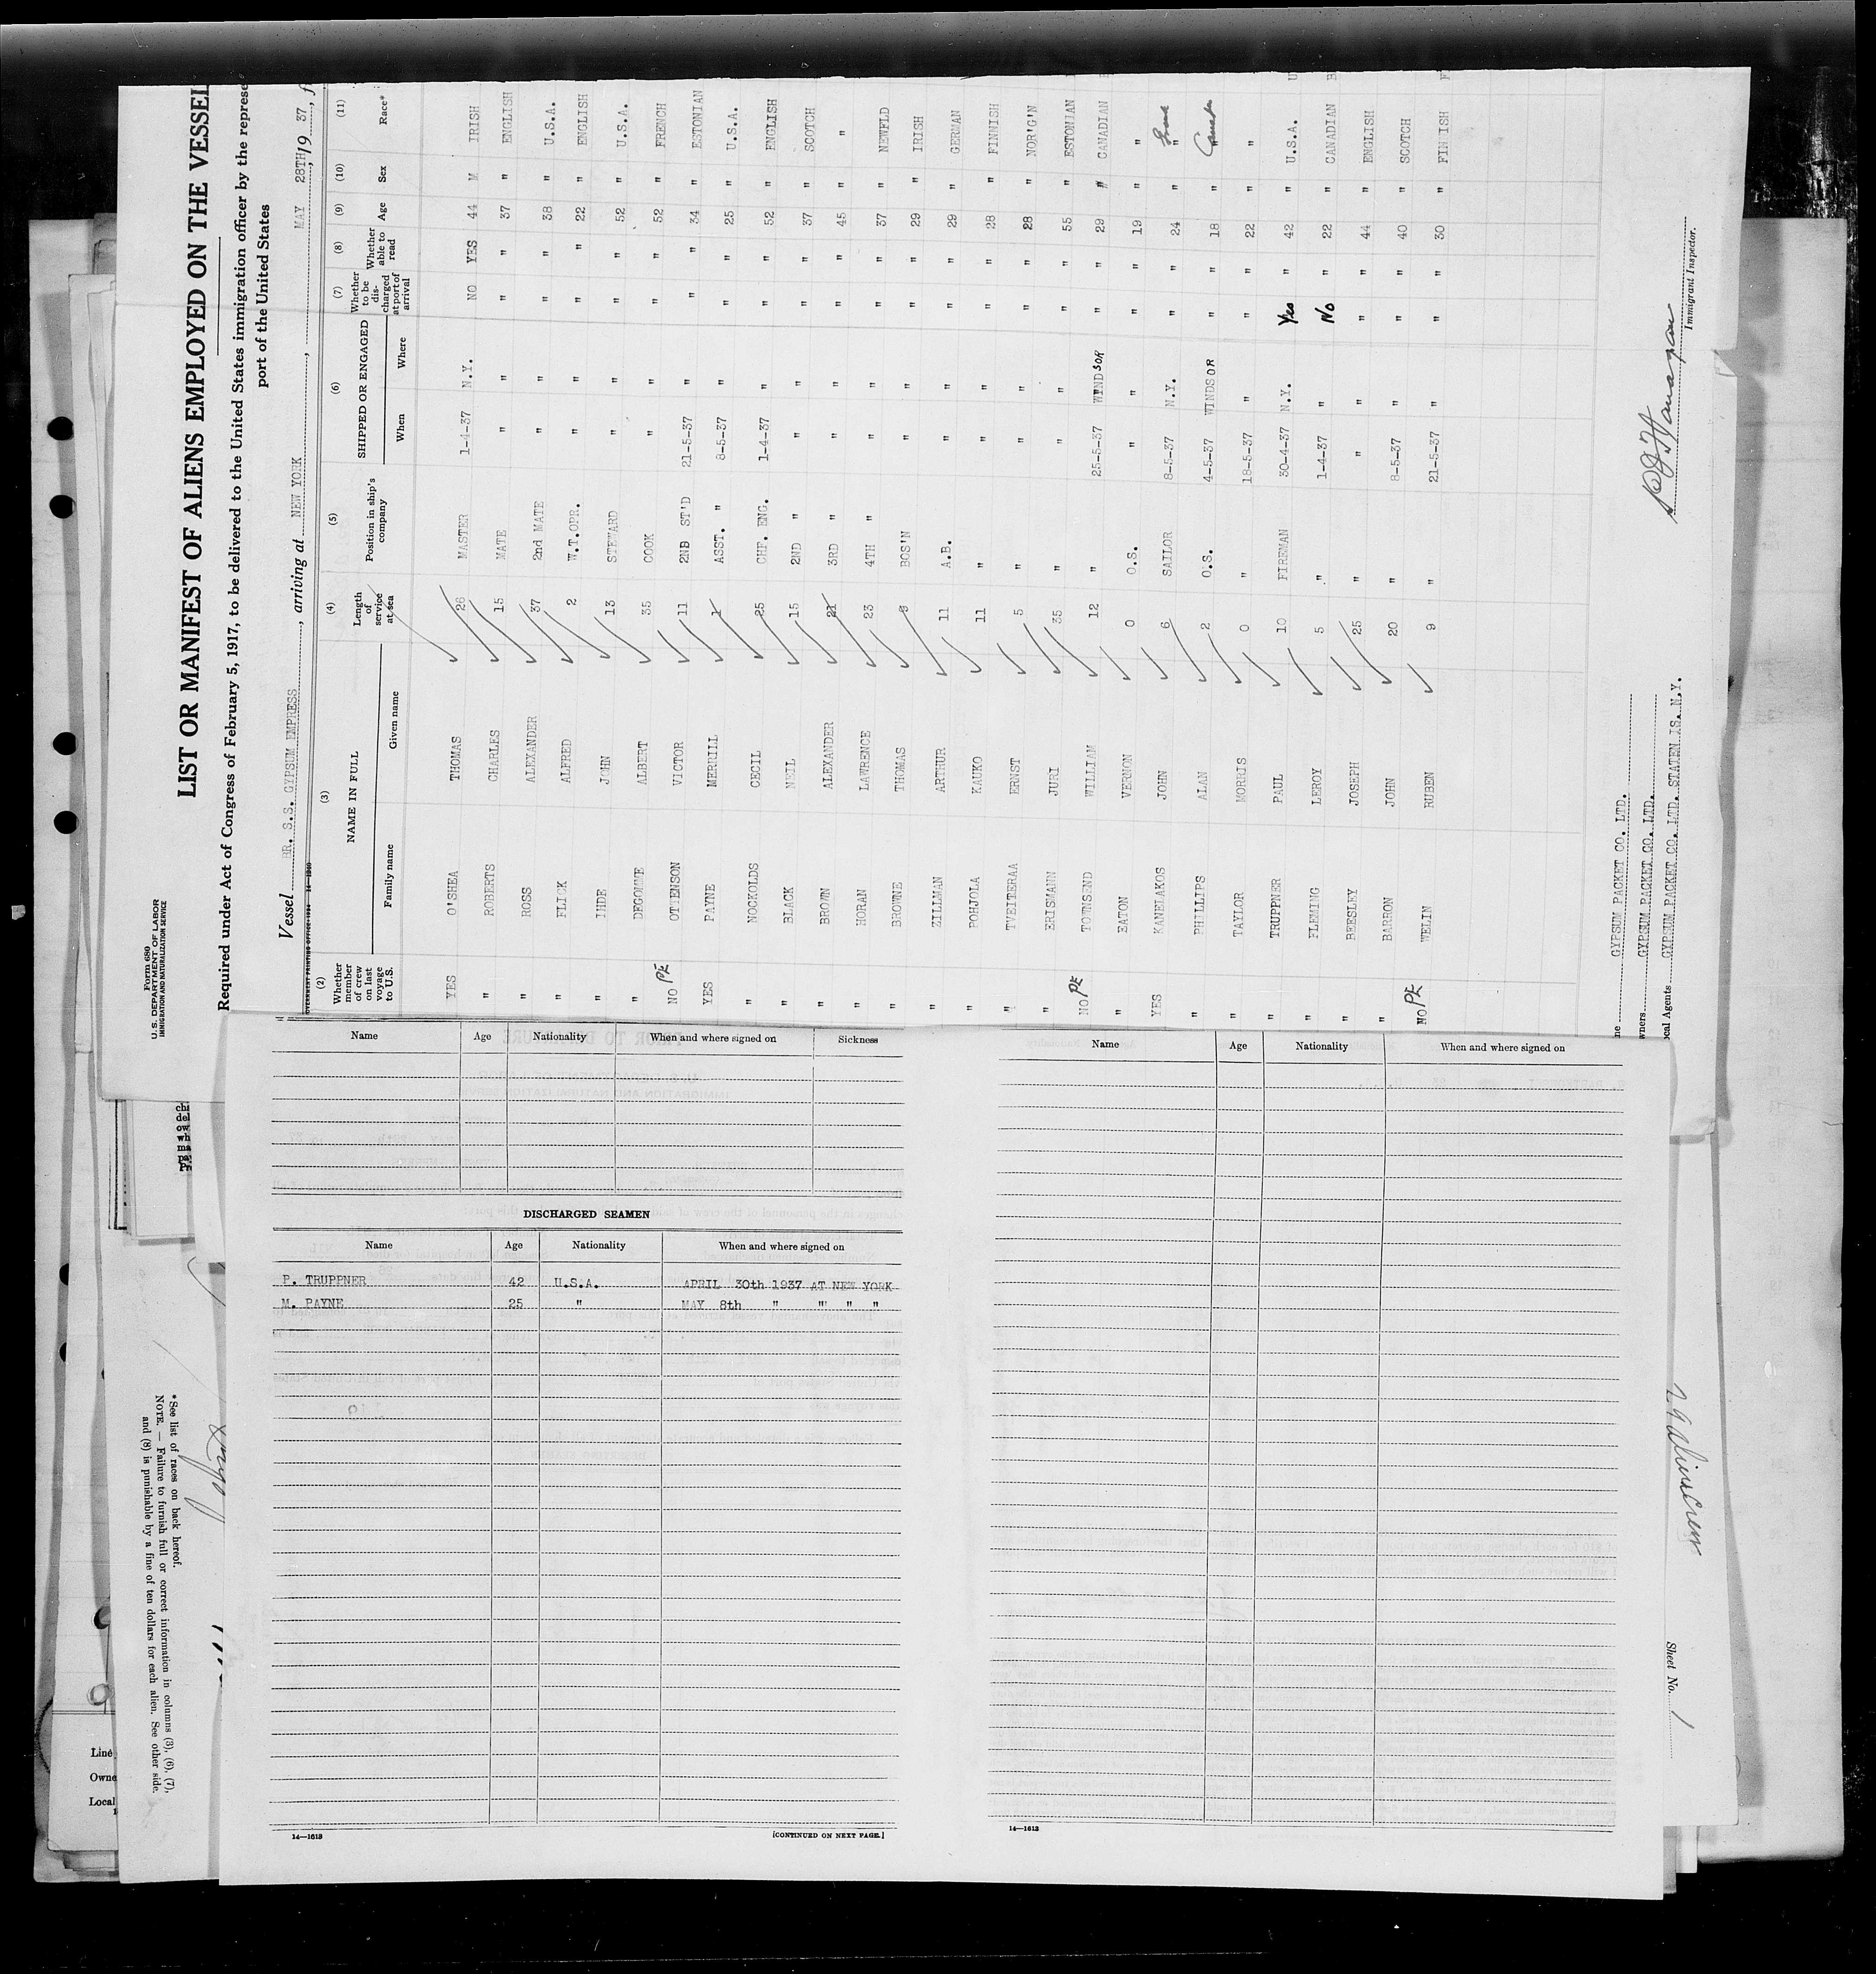 Form 680
U. S. DEPARTMENT OF LABOR
IMMIGRATION AND NATURALIZATION SERVICE
LIST OR MANIFEST OF ALIENS EMPLOYED ON THE VESSEL
Required under Act of Congress of February 5, 1917, to be delivered to the United States immigration officer by the represe
port of the United States
Vessel BR. S.S. GYPSUM EMPRESS, arriving at NEW YORK, MAY 28TH, 19 37, f
(2) Whether member of crew on last voyage to U.S. (3) NAME IN FULL Family name Given name (4) Length of service at sea (5) Position in ship's company (6) SHIPPED OR ENGAGED When Where (7) Whether to be discharged at port of arrival (8) Whether able to read (9) Age (10) Sex (11) Race*
YES O'SHEA THOMAS 26 MASTER 1-4-37 N.Y. NO YES 44 M IRISH
" ROBERTS CHARLES 15 MATE " " " " 37 " ENGLISH
" ROSS ALEXANDER 37 2nd MATE " " " " 38 " U.S.A.
" FLICK ALFRED 2 W.T.OPR. " " " " 22 " ENGLISH
" IHDE JOHN 13 STEWARD " " " " 52 " U.S.A.
" DEGOMME ALBERT 35 COOK " " " " 52 " FRENCH
NO PE OTTENSON VICTOR 11 2NB ST'D 21-5-37 " " " 34 " ESTONIAN
YES PAYNE MERRILL 1 ASST. " 8-5-37 " " " 25 " U.S.A.
" NOCKOLDS CECIL 25 CHF. ENG. 1-4-37 " " " 52 " ENGLISH
" BLACK NEIL 15 2ND " " " " " 37 " SCOTCH
" BROWN ALEXANDER 21 3RD " " " " " 45 " "
" HORAN LAWRENCE 23 4TH " " " " " 37 " NEWFLD
" BROWNE THOMAS 9 BOS'N " " " " 29 " IRISH
" ZILLMAN ARTHUR 11 A.B. " " " " 29 " GERMAN
" POHJOLA KAUKO 11 " " " " " 28 " FINNISH
" TVEITERAA ERNST 5 " " " " " 28 " NOR'G'N
" ERISMANN JURI 35 " " " " " 55 " ESTONIAN
NO PE TOWNSEND WILLIAM 12 " 25-5-37 WINDSOR " " 29 " CANADIAN
" EATON VERNON 0 O.S. " " " " 19 " "
YES KANELAKOS JOHN 6 SAILOR 8-5-37 N.Y. " " 24 " "
" PHILLIPS ALAN 2 O.S. 4-5-37 WINDSOR " " 18 " "
" TAYLOR MORRIS 0 " 18-5-37 " " " 22 " "
" TRUPPNER PAUL 10 FIREMAN 30-4-37 N.Y. Yes " 42 " U.S.A.
" FLEMING LEROY 5 " 1-4-37 " No " 22 " CANADIAN
" BEESLEY JOSEPH 25 " " " " " 44 " ENGLISH
" BARRON JOHN 20 " 8-5-37 " " " 40 " SCOTCH
NO PE WELIN RUBEN 9 " 21-5-37 " " " 30 " FINNISH
ne GYPSUM PACKET CO. LTD.
wners GYPSUM PACKET CO. LTD.
ocal Agents GYPSUM PACKET CO. LTD. STATEN IS. N.Y.
Immigrant Inspector.
Name Age Nationality When and where signed on Sickness
DISCHARGED SEAMEN
Name Age Nationality When and where signed on
P. TRUPPNER 42 U.S.A. APRIL 30th 1937 AT NEW YORK
M. PAYNE 25 " MAY 8th " " " "
14—1613
[CONTINUED ON NEXT PAGE.]
Name Age Nationality When and where signed on
14—1613
*See list of races on back hereof.
NOTE.—Failure to furnish full or correct information in columns (3), (6), (7),
and (8) is punishable by a fine of ten dollars for each alien. See other side.
Line
Owne
Local
29 Alien Crew
Sheet No. 1